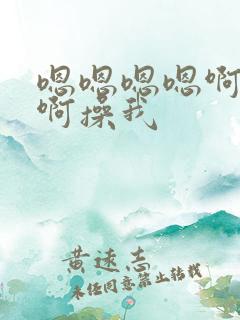 嗯嗯嗯嗯啊
啊操我
黄速志
未经同意禁止转载